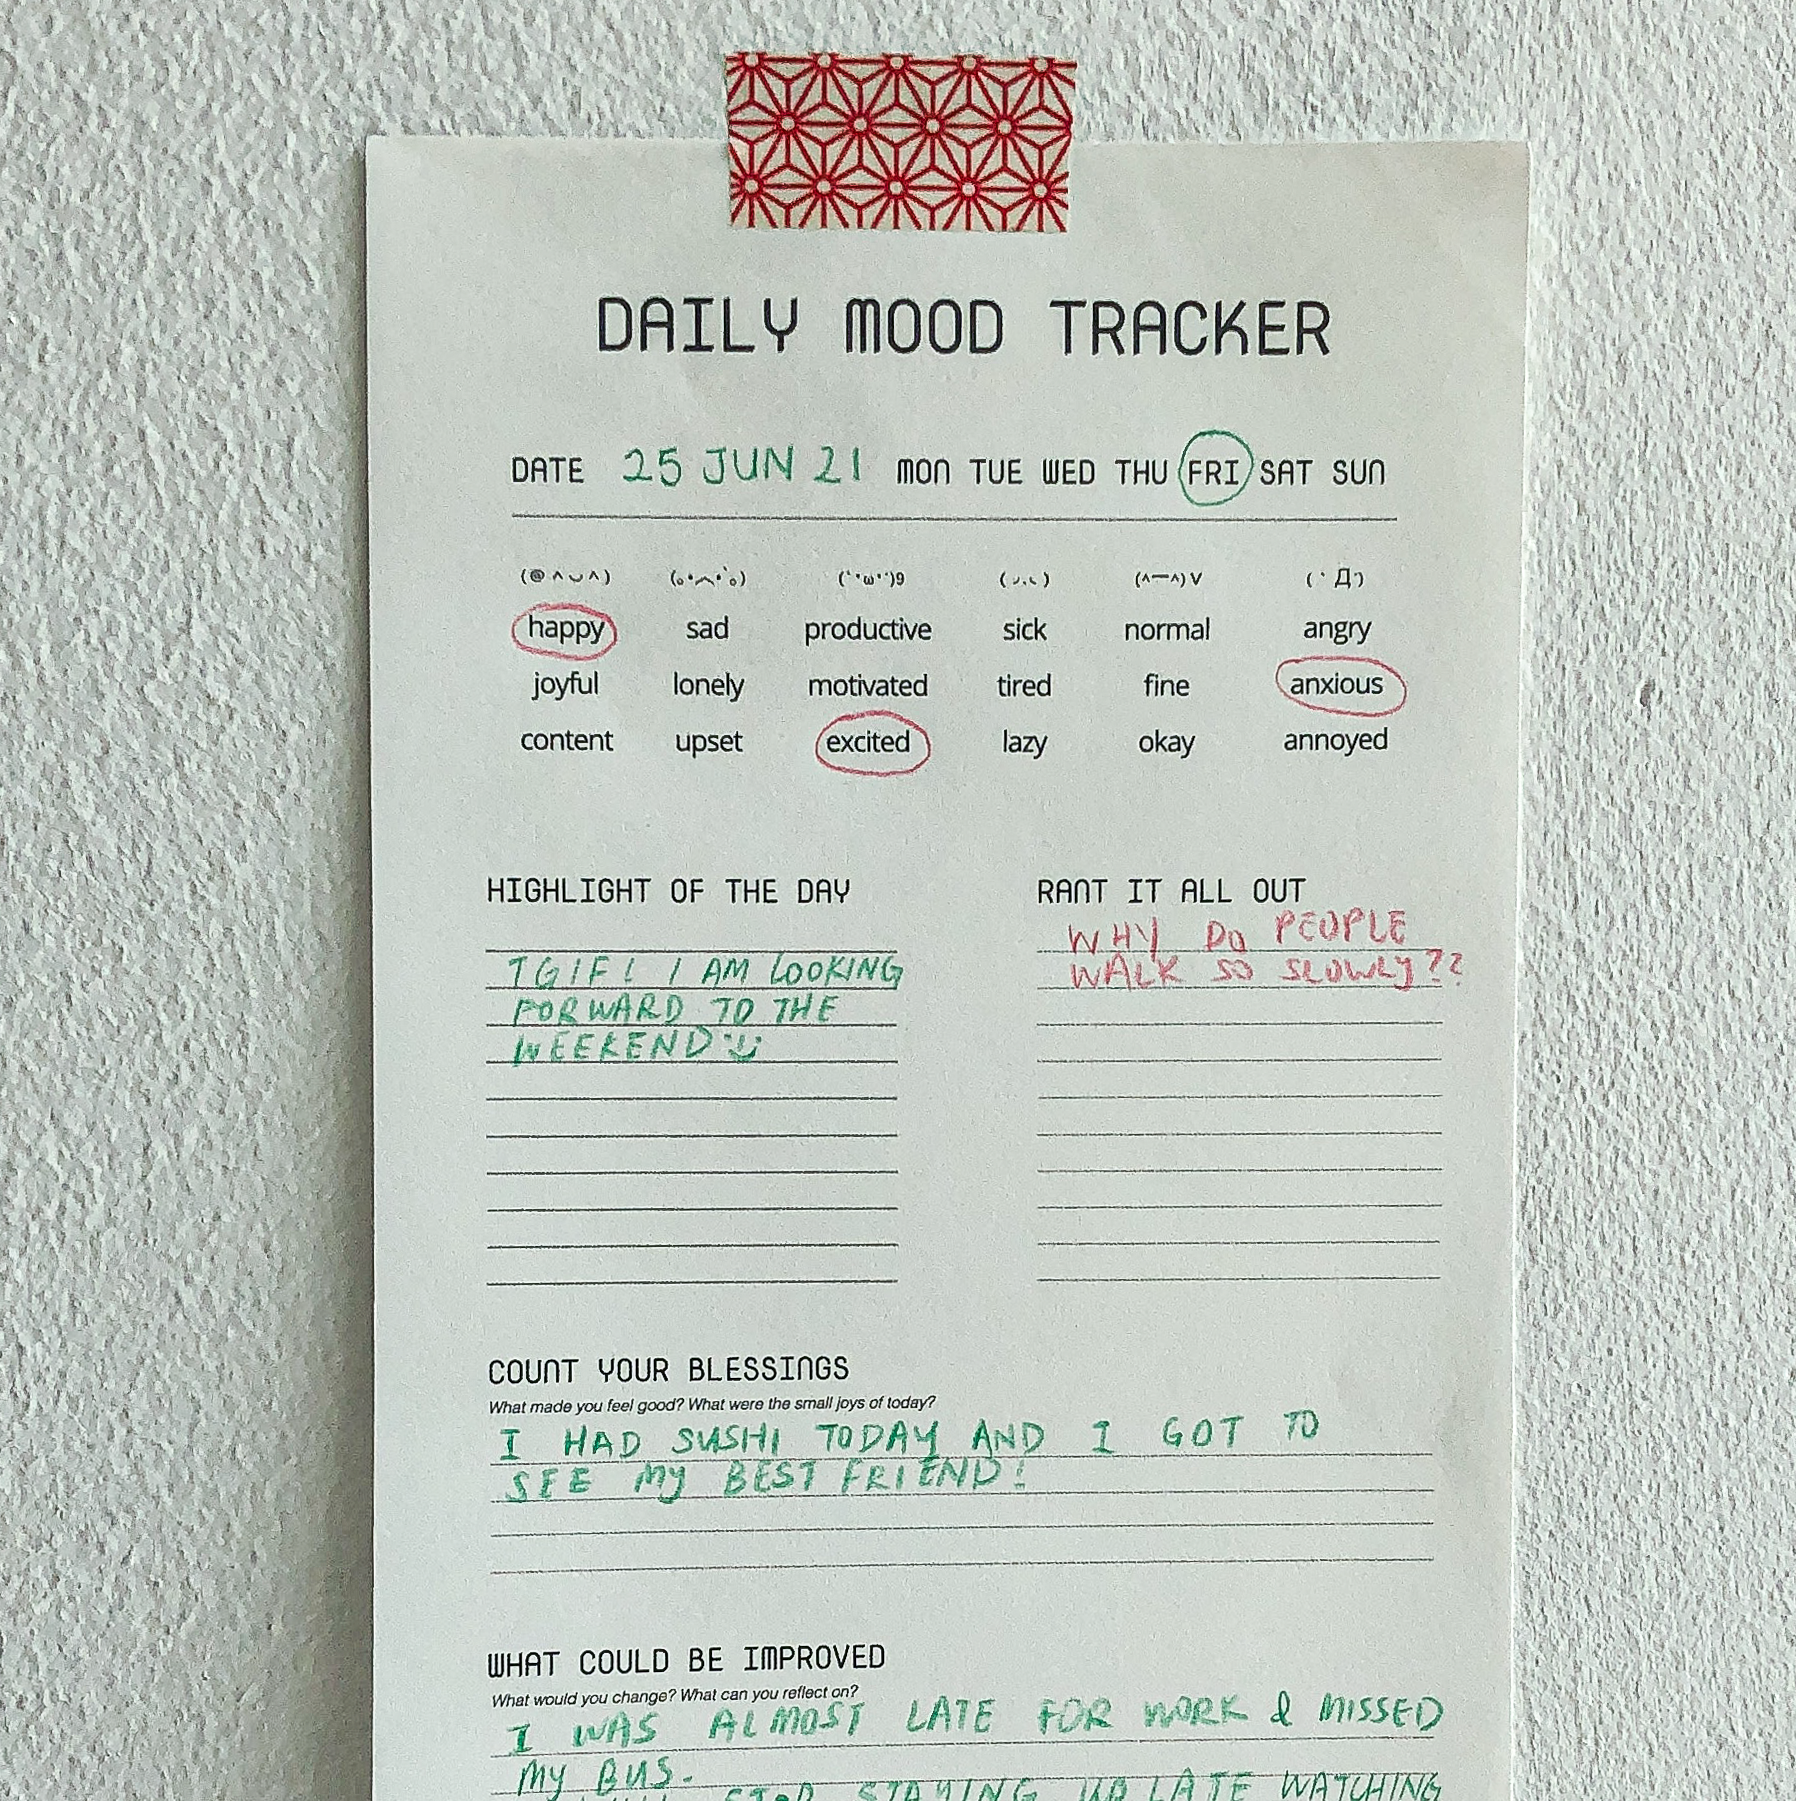 DAILY MOOD TRACKER
DATE 25 JUN 21 MON TUE WED THU FRI SAT SUN
happy sad productive sick normal angry
joyful lonely motivated tired fine anxious
content upset excited lazy okay annoyed
HIGHLIGHT OF THE DAY
TGIF! I AM LOOKING
FORWARD TO THE
WEEKEND
RANT IT ALL OUT
WHY DO PEOPLE
WALK SO SLOWLY??
COUNT YOUR BLESSINGS
What made you feel good? What were the small joys of today?
I HAD SUSHI TODAY AND I GOT TO
SEE MY BEST FRIEND!
WHAT COULD BE IMPROVED
What would you change? What can you reflect on?
I WAS ALMOST LATE FOR WORK & MISSED
MY BUS.
STOP STAYING UP LATE WATCHING